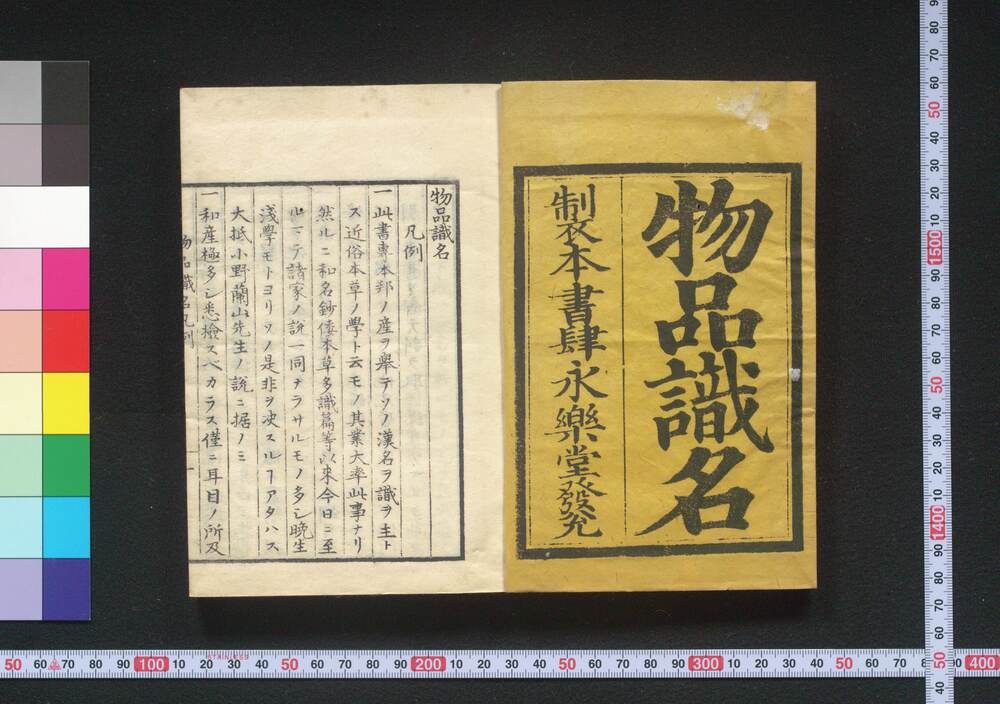 物品識名
製本書肆永樂堂發兌
物品識名
凡例
一此書專本邦ノ産ヲ舉テソノ漢名ヲ識ヲ主ト
ス近俗本草ノ學ト云モノ其業大率此事ナリ
然ルニ和名鈔倭本草多識篇等以来今日ニ至
ルマテ諸家ノ說一同ナラサルモノ多シ晩生
淺學モトヨリソノ是非ヲ决スルヿアタハス
大抵小野蘭山先生ノ說ニ据ノミ
一和産極多シ悉檢スベカラス僅ニ耳目ノ所及
物品識名凡例
50 60 70 80 90 100 10 20 30 40 50 60 70 80 90 200 10 20 30 40 50 60 70 80 90 300 10 20 30 40 50 60 70 80 90 400
STAINLESS
80 70 60 50 40 30 20 10 1500 90 80 70 60 50 40 30 20 10 1400 90 80 70 60 50 40